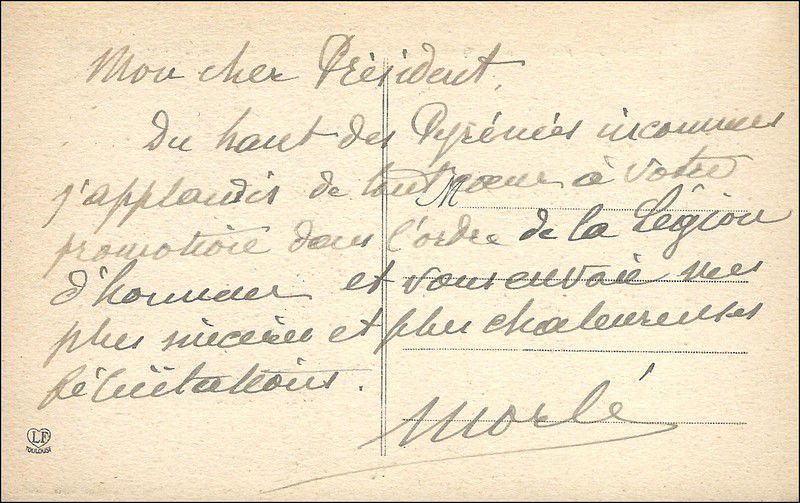 Mon cher Président,
Du haut des Pyrénées inconnues
j'applaudis de tout cœur à votre
M
promotion dans l'ordre de la Légion
d'honneur et vous envoie mes
plus sincères et plus chaleureuses
félicitations.
Morlé
LF
TOULOUSE